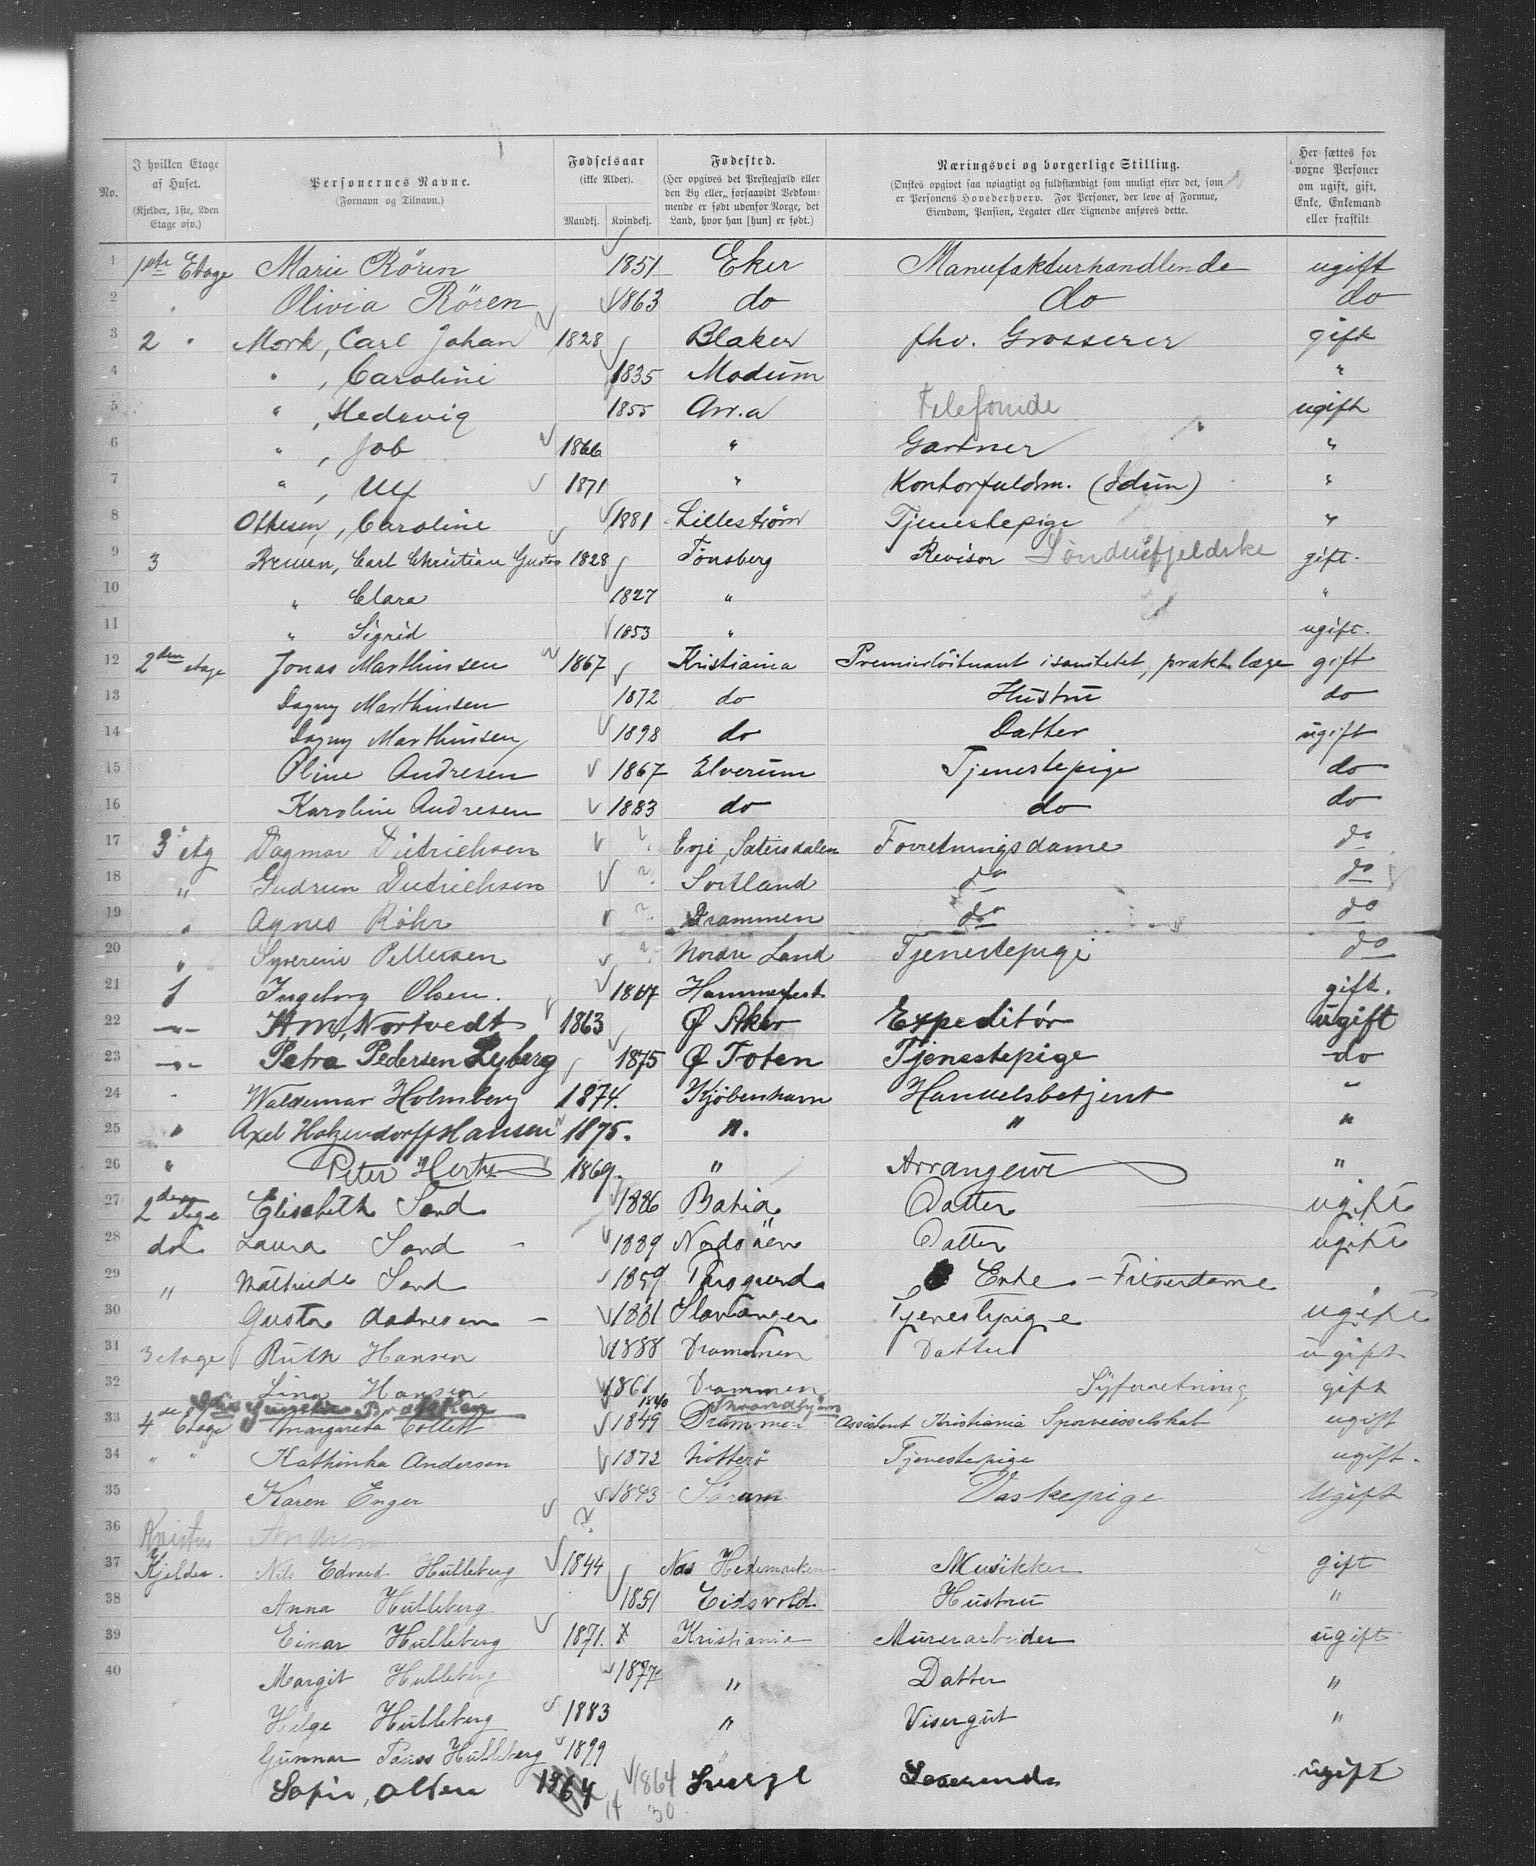 No.
I hvilken Etage af Huset. (Kjelder, 1ste, 2den Etage osv.)
Personernes Navne. (Fornavn og Tilnavn.)
Fødselsaar (ikke Alder). Mandkj. Kvindekj.
Fødested. (Her opgives det Prestegjæld eller den By eller, forsaavidt Vedkommende er født udenfor Norge, det Land, hvor han [hun] er født.)
Næringsvei og borgerlige Stilling. (Ønskes opgivet saa nøiagtigt og fuldstændigt som muligt efter det, som er Personens Hovederhverv. For Personer, der leve af Formue, Eiendom, Pension, Legater eller Lignende anføres dette.
Her sættes for vorne Personer om ugift, gift, Enke, Enkemand eller fraskilt
1 1ste Etage Marie Røren 1851 Eker Manufakturhandlende ugift
2 " Olivia Røren 1863 do do do
3 2 " Mork, Carl Johan 1828 Blaker fhv. Grosserer gift
4 " , Caroline 1835 Modum "
5 " , Hedevig 1855 Telefonide ugift
6 " , Job 1866 " Gartner "
7 " , Ulf 1871 " Kontorfuldm. (Idun) "
8 Othesen, Caroline 1881 Lillestrøm Tjenestepige "
9 3 Bruun, Carl Christian Gustav 1828 Tønsberg Revisor Søndenfjeldske gift.
10 " Clara 1827 " "
11 " Sigrid 1853 " ugift.
12 2den etage Jonas Marthinsen 1867 Kristiania Premierløitnant i sanitetet, prakt. læge gift
13 Dagny Marthinsen 1872 do Hustru do
14 Dagny Marthinsen 1898 do Datter ugift
15 Oline Andresen 1867 Elverum Tjenestepige do
16 Karoline Andresen 1883 do do do
17 3 etg Dagmar Dietrichson ? Evje, Sætersdalen Forretningsdame do
18 " Gudrun Dietrichson ? Sortland do do
19 " Agnes Røhr ? Drammen do do
20 " Syverine Pettersen ? Nordre Land Tjenestepige do
21 Ingeborg Olsen. 1867 Hammerfest gift.
22 Nortvedt 1863 Ø Aker Expeditør ugift
23 Petra Pedersen Lyberg 1875 Ø Toten Tjenestepige do
24 " Waldemar Holmberg 1874. Kjøbenhavn Handelsbetjent "
25 " Axel Holzendorff Hansen 1875. ". " "
26 " Peter Hertz 1869. " Arrangeur "
27 2den etage Elisabeth Sand 1886 Bahia Datter ugift
28 do Laura Sand 1889 Nordsøen Datter ugift
29 " Mathilde Sand 1859 Porsgrund Enke - Friserdame
30 Gusta Aadnesen 1881 Stavanger Tjenestepige ugift
31 3 etage Ruth Hansen 1888 Drammen Datter ugift
32 Lina Hansen 1861 Drammen Syforretning gift
1840 Throndhjem
33 4de Etage Margareta Collett 1849 Drammen Assistent Kristiania Sparevisselskab ugift
34 " " Kathinka Andersen 1872 Nøtterø Tjenestepige ugift.
35 Karen Enger 1843 Sørum Vaskepige Ugift
36 Kvistus ?
37 Kjelder. Nils Edvard Hulleberg 1844 Næs Hedemarken Musikker gift
38 Anna Hulleberg 1851 Eidsvold Hustru "
39 Einar Hulleberg 1871. Kristiania Murerarbeider ugift
40 Margit Hulleberg 1877 " Datter "
Helge Hulleberg 1883 " Visergut "
Gunnar Hulleberg 1899
Sofie, Olsen 1864 1864 ugift
14 30